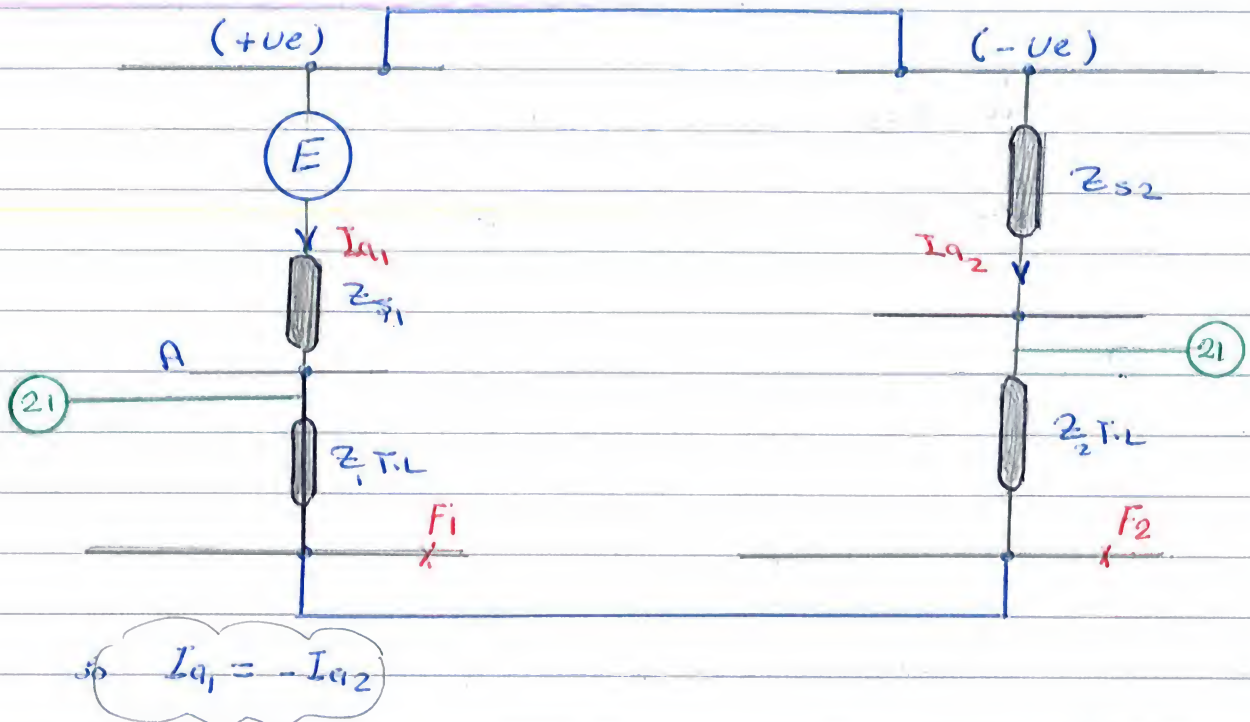 (+ve) (-ve)
E
Ia1
Zs1
Zs2
Ia2
A
21
21
Z1 T.L
Z2 T.L
F1
F2
so Ia1 = -Ia2